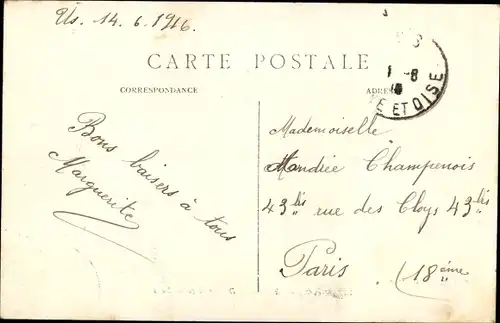 Us. 14.6.1916.
CARTE POSTALE
CORRESPONDANCE
Bons baisers à tous
Marguerite
Mademoiselle
Andrée Champenois
43 bis rue des Cloys 43 bis
Paris (18ème
ET OISE